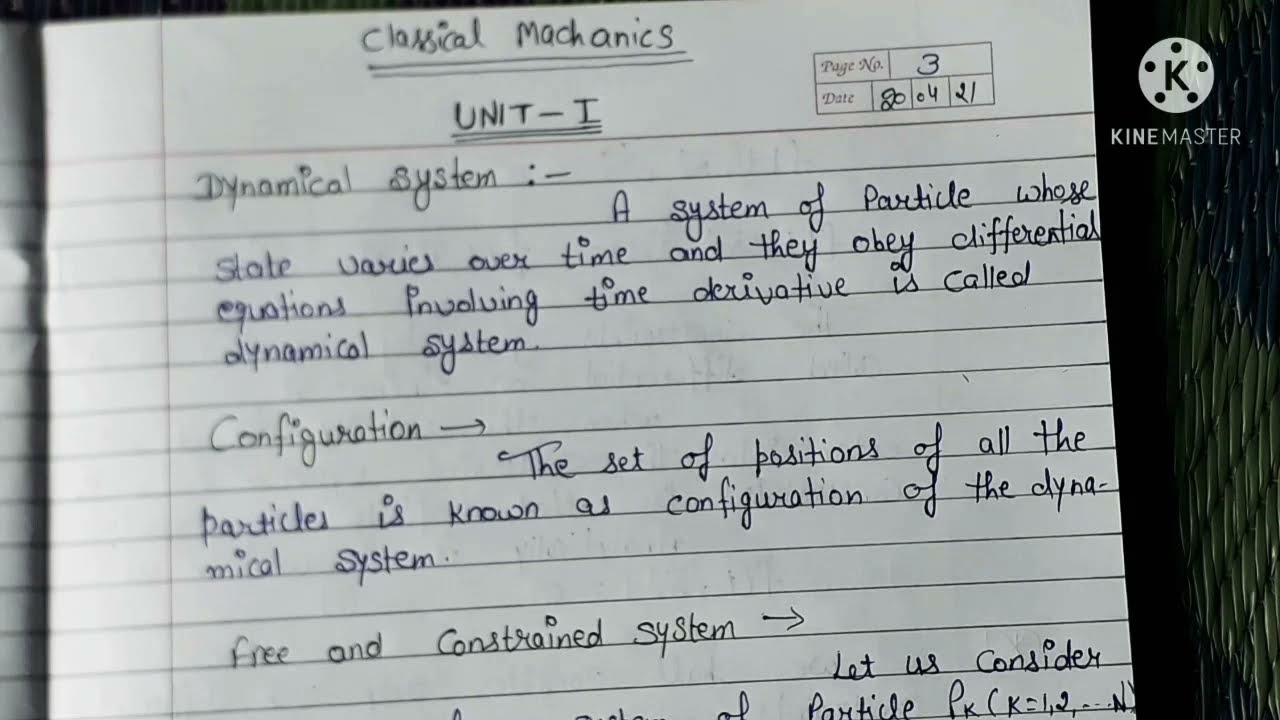 Classical Machanics
Page No. 3
Date 20 04 21
K
KINEMASTER
UNIT-I
Dynamical system :-
A system of Particle whose
state varies over time and they obey differential
equations involving time derivative is called
dynamical system.
Configuration →
The set of positions of all the
particles is known as configuration of the dyna-
mical system.
free and Constrained system →
Let us Consider
of Particle Pk (K=1,2,...N)